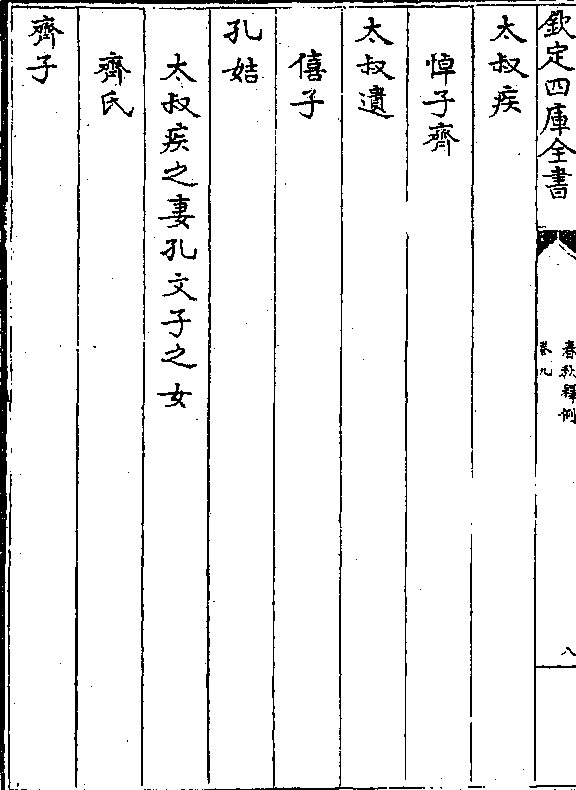 欽定四庫全書
春秋釋例
卷九
八
太叔疾
悼子齊
太叔遺
僖子
孔姞
太叔疾之妻孔文子之女
齊氏
齊子